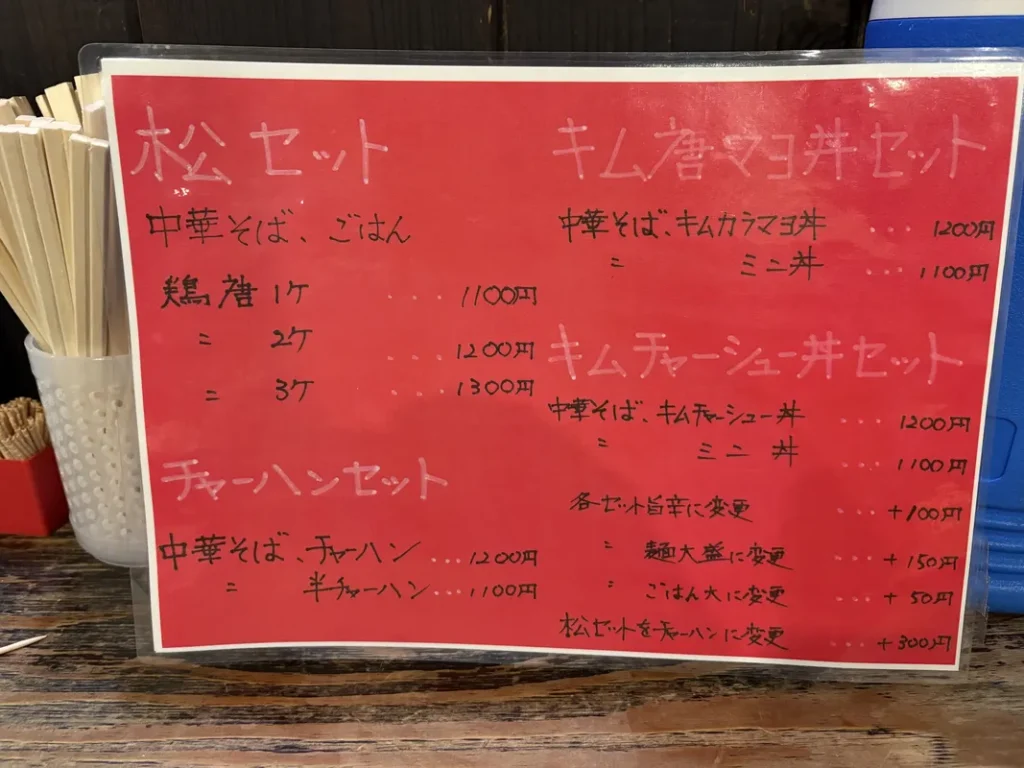 松セット
中華そば、ごはん
鶏唐1ケ ...1100円
〃 2ケ ...1200円
〃 3ケ ...1300円
チャーハンセット
中華そば、チャーハン ...1200円
〃 半チャーハン ...1100円
キム唐マヨ丼セット
中華そば、キムカラマヨ丼 ....1200円
〃 ミニ丼 ...1100円
キムチャーシュー丼セット
中華そば、キムチャーシュー丼 ....1200円
〃 ミニ丼 ....1100円
各セット旨辛に変更 ....+100円
〃 麺大盛に変更 ....+150円
〃 ごはん大に変更 ....+50円
松セットをチャーハンに変更 ....+300円